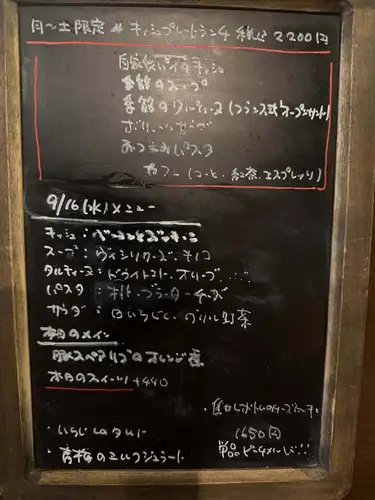 月〜土限定 # キッシュプレートランチ 税込 2200円
自家製パイのキッシュ
季節のスープ
季節のタルティーヌ (フランス式オープンサンド)
ボリュームサラダ
おつまみパスタ
カフェ (コーヒー・紅茶・エスプレッソ)
9/16(水)メニュー
キッシュ : ベーコンとズッキーニ
スープ : ヴィシソワーズ・キノコ
タルティーヌ : ドライトマト・オリーブ
パスタ : チーズ
サラダ : 白いんげん・グリル野菜
本日のメイン
豚スペアリブのオレンジ煮
本日のスイーツ +440
・いちじくのタルト
・青梅のミルクジェラート
・焦がし のチーズケーキ
1650円